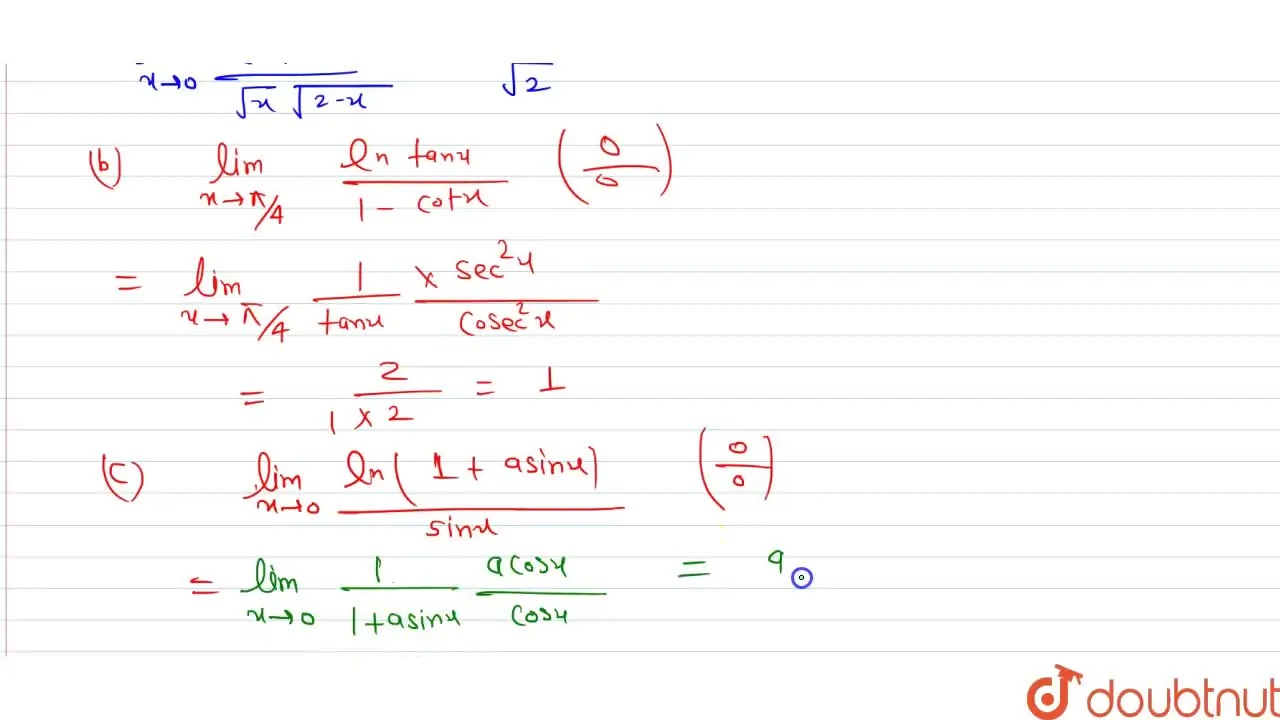 x→0 √x √2-x √2
(b) lim x→π/4 ln tanx / 1 - cotx (0/0)
= lim x→π/4 1/tanx × sec²x / cosec²x
= 2 / 1×2 = 1
(c) lim x→0 ln(1 + asinx) / sinx (0/0)
= lim x→0 1 / 1+asinx acosx / cosx = a
doubtnut